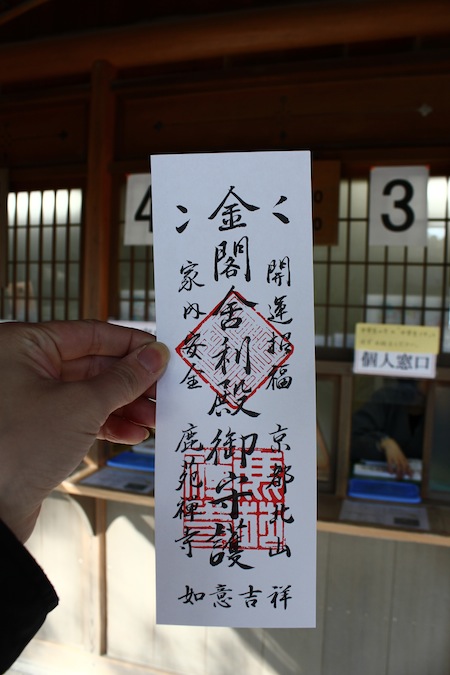 開運招福 京都北山
金閣舎利殿御守護
家内安全 鹿苑禅寺
如意吉祥
4
3
個人窓口